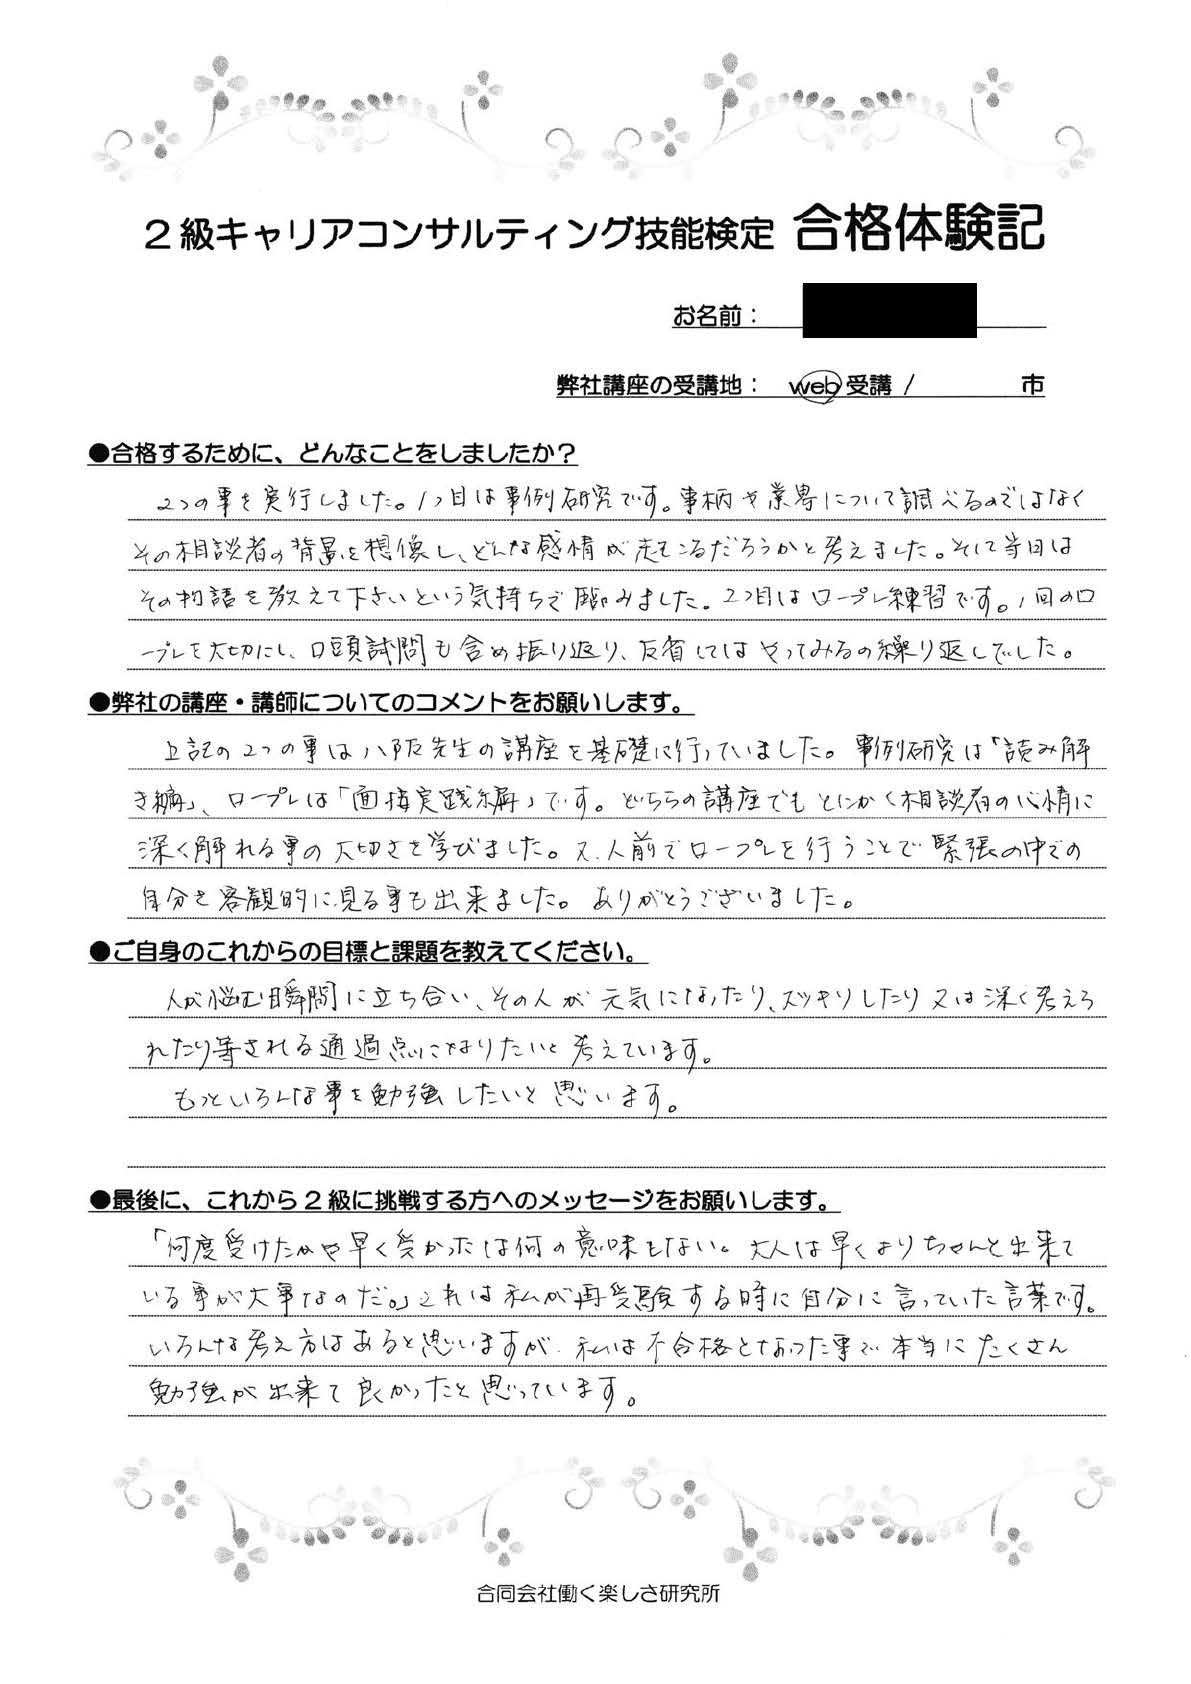 2級キャリアコンサルティング技能検定 合格体験記
お名前：
弊社講座の受講地： web受講 / 市
●合格するために、どんなことをしましたか？
2つの事を実行しました。1つ目は事例研究です。事柄や業界について調べるのではなく
その相談者の背景を想像し、どんな感情が起こるだろうかと考えました。そして当日は
その物語を教えて下さいという気持ちで臨みました。2つ目はロープレ練習です。1回のロ
ープレを大切にし、口頭試問も含め振り返り、反省してはやってみるの繰り返しでした。
●弊社の講座・講師についてのコメントをお願いします。
上記の2つの事は八阪先生の講座を基礎に行っていました。事例研究は「読み解
き編」、ロープレは「面接実践編」です。どちらの講座でもとにかく相談者の心情に
深く触れる事の大切さを学びました。又、人前でロープレを行うことで緊張の中での
自分を客観的に見る事も出来ました。ありがとうございました。
●ご自身のこれからの目標と課題を教えてください。
人が悩む瞬間に立ち合い、その人が元気になったり、スッキリしたり又は深く考えら
れたり等される通過点になりたいと考えています。
もっといろんな事を勉強したいと思います。
●最後に、これから2級に挑戦する方へのメッセージをお願いします。
「何度受けたかや早く受かったは何の意味もない。大人は早くよりちゃんと出来て
いる事が大事なのだ。」これは私が再受験する時に自分に言っていた言葉です。
いろんな考え方はあると思いますが、私は不合格となった事で本当にたくさん
勉強が出来て良かったと思っています。
合同会社働く楽しさ研究所